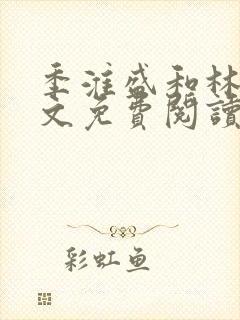 季淮盛和林
文免費閱讀
彩虹鱼